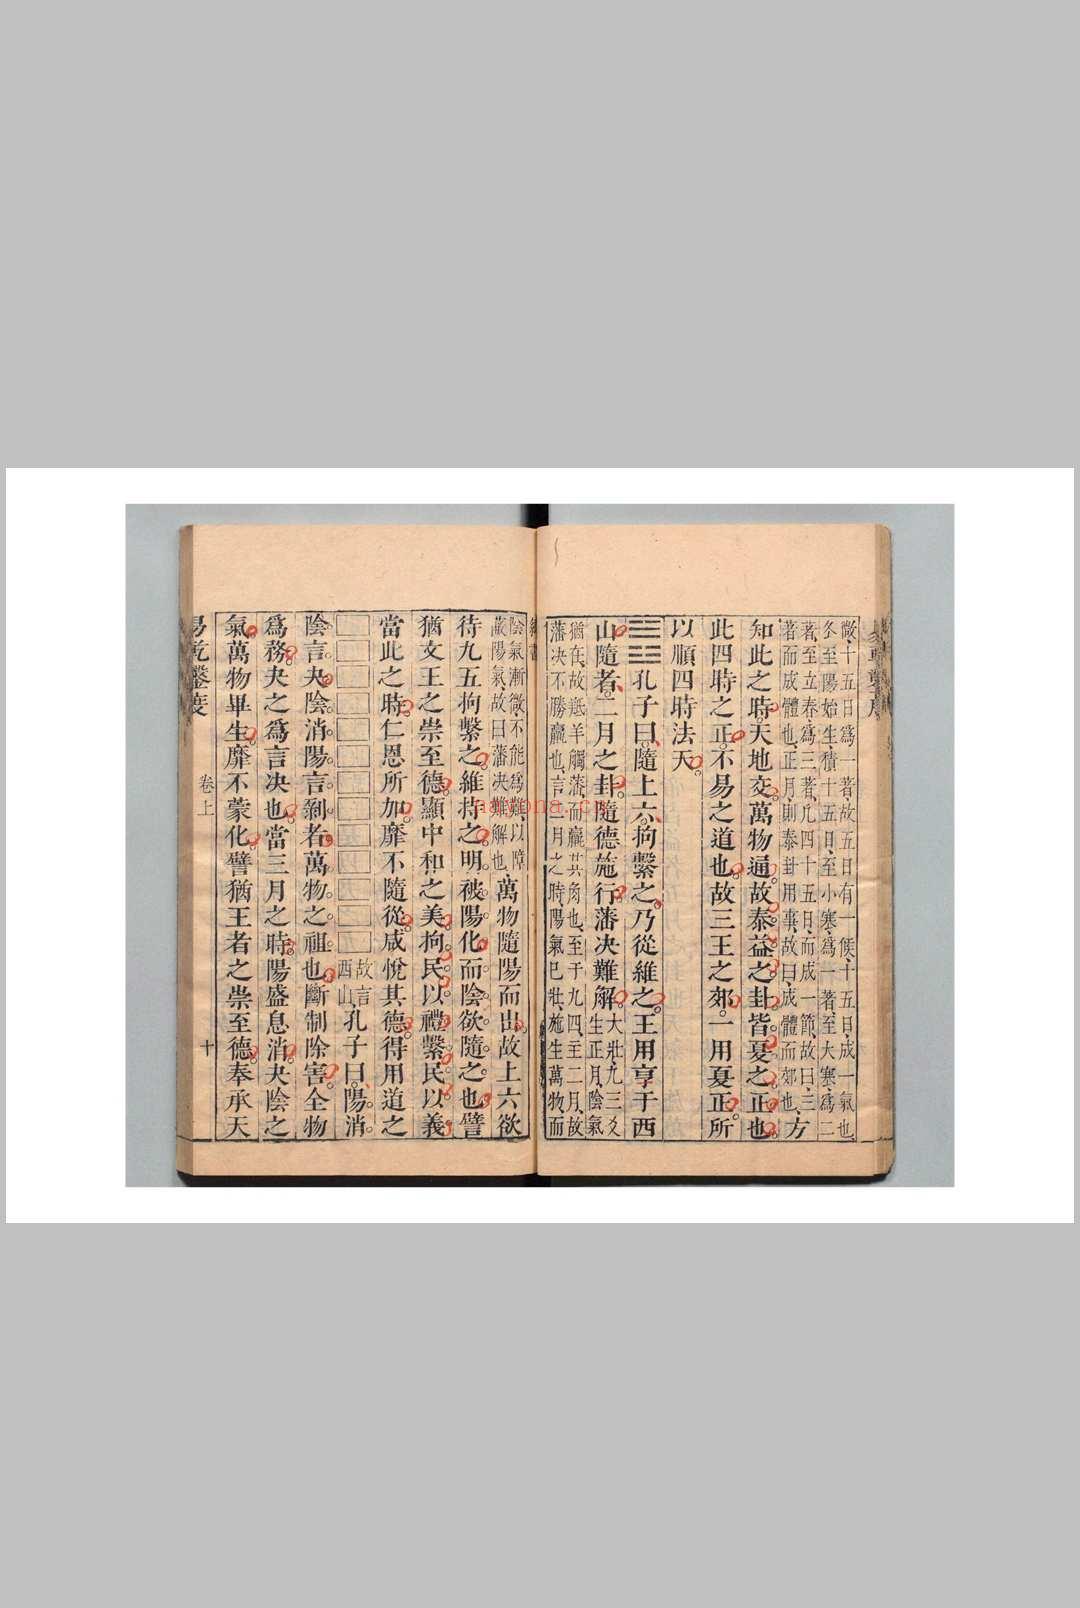 微、十五日爲一著故五日有一候、十五日、成一氣也、
冬至陽始生、積十五日、至小寒、爲一著至大寒、爲二
著、至立春爲三著、凡四十五日、而成一節、故曰、三
著而成體也、正月、則泰卦用事、故曰、成體而郊也、方
知此之時天地交萬物通。故泰益之卦皆夏之正也。
此四時之正。不易之道也。故三王之郊。一用夏正。所
以順四時法天。
䷐孔子曰隨上六、拘繫之、乃從維之。王用亨于西
山隨者、二月之卦。隨德施行藩决難解。
大壯九三爻
生正月、陰氣
猶在、故羝羊觸藩、而羸其角也、至于九四、主二月、故
藩决不勝羸也、言二月之時、陽氣已壯、施生萬物而
陰氣漸微、不能爲難、以障
蔽陽氣、故曰藩决難解也、
萬物隨陽而出。故上六欲
待九五拘繫之。維持之。明被陽化而陰欲隨之也。譬
猶文王之崇至德。顯中和之美。拘民以禮繫民以義。
當此之時。仁恩所加。靡不隨從。咸悅其德。得用道之
故言
西山、
孔子曰、陽消
陰言夬。陰消陽。言剝者。萬物之祖也。斷制除害。全物
爲務。夬之爲言决也。當三月之時。陽盛息消。夬陰之
氣。萬物畢生。靡不蒙化。譬猶王者之崇至德。奉承天
易乾鑿度
卷上
十
nayona.cn